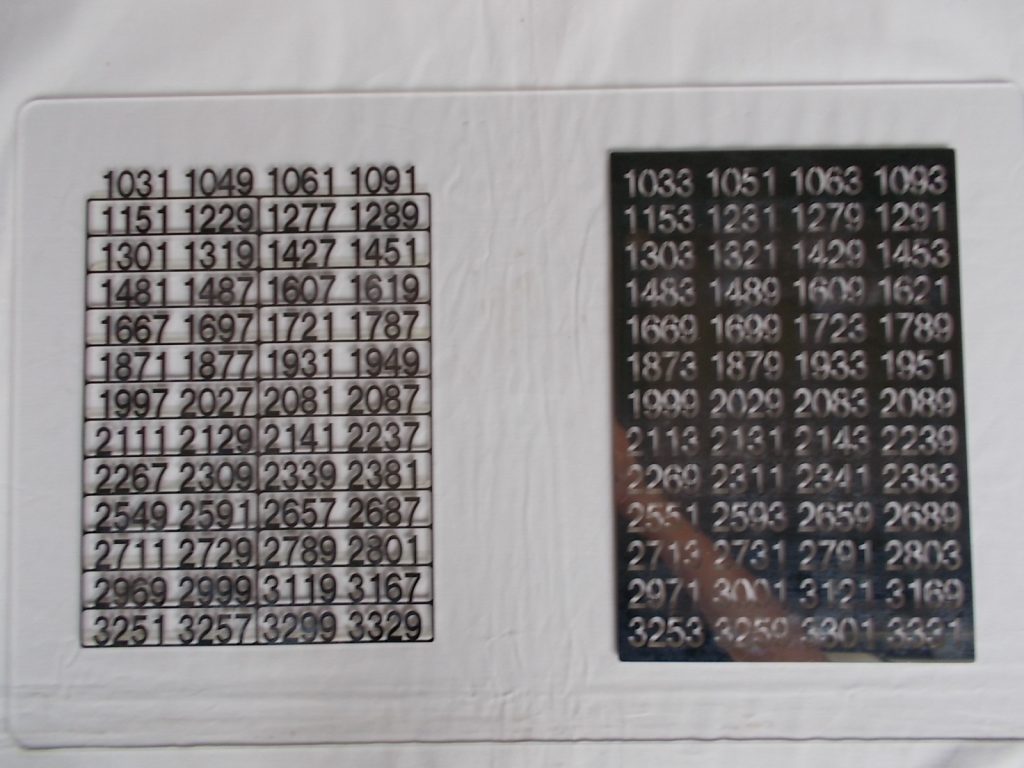 1031 1049 1061 1091
1151 1229 1277 1289
1301 1319 1427 1451
1481 1487 1607 1619
1667 1697 1721 1787
1871 1877 1931 1949
1997 2027 2081 2087
2111 2129 2141 2237
2267 2309 2339 2381
2549 2591 2657 2687
2711 2729 2789 2801
2969 2999 3119 3167
3251 3257 3299 3329
1033 1051 1063 1093
1153 1231 1279 1291
1303 1321 1429 1453
1483 1489 1609 1621
1669 1699 1723 1789
1873 1879 1933 1951
1999 2029 2083 2089
2113 2131 2143 2239
2269 2311 2341 2383
2551 2593 2659 2689
2713 2731 2791 2803
2971 3001 3121 3169
3253 3259 3301 3331